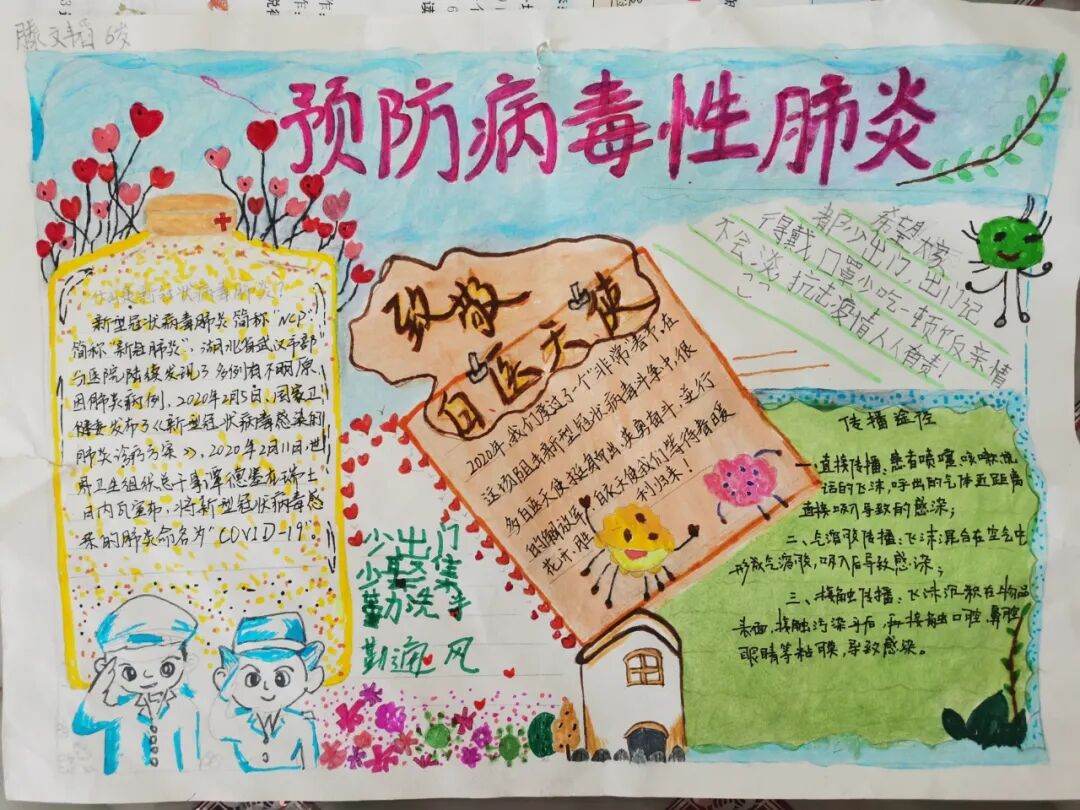 滕文韬 6岁
预防病毒性肺炎
希望大家
都少出门，出门记
得戴口罩小吃一顿饭亲情
不会淡，抗击疫情人人有责！
致敬
白医天使
什么是新冠状病毒肺炎？
新型冠状病毒肺炎简称"NCP"，
简称"新冠肺炎"，湖北省武汉市部
与医院陆续发现了多例有不明原
因肺炎病例，2020年2月5日，国家卫
健委发布了《新型冠状病毒感染的
肺炎诊疗方案》，2020年2月11日，世
界卫生组织总干事谭德塞在瑞士
日内瓦宣布，将新型冠状病毒感
染的肺炎命名为"COVID-19"。
2020年，我们度过了个"非常"春节在
这场阻击新型冠状病毒斗争中，很
多白医天使挺身而出，英勇奋斗，逆行
的解放军、白衣天使我们等待春暖
花开，胜利归来！
少出门
少聚集
勤洗手
勤通风
传播途径
一、直接传播，患者喷嚏、咳嗽、说
话的飞沫，呼出的气体近距离
直接吸入导致的感染；
二、气溶胶传播：飞沫混合在空气中
形成气溶胶，吸入后导致感染；
三、接触传播：飞沫沉积在物品
表面，接触污染手后，再接触口腔、鼻腔
眼睛等粘膜，导致感染。